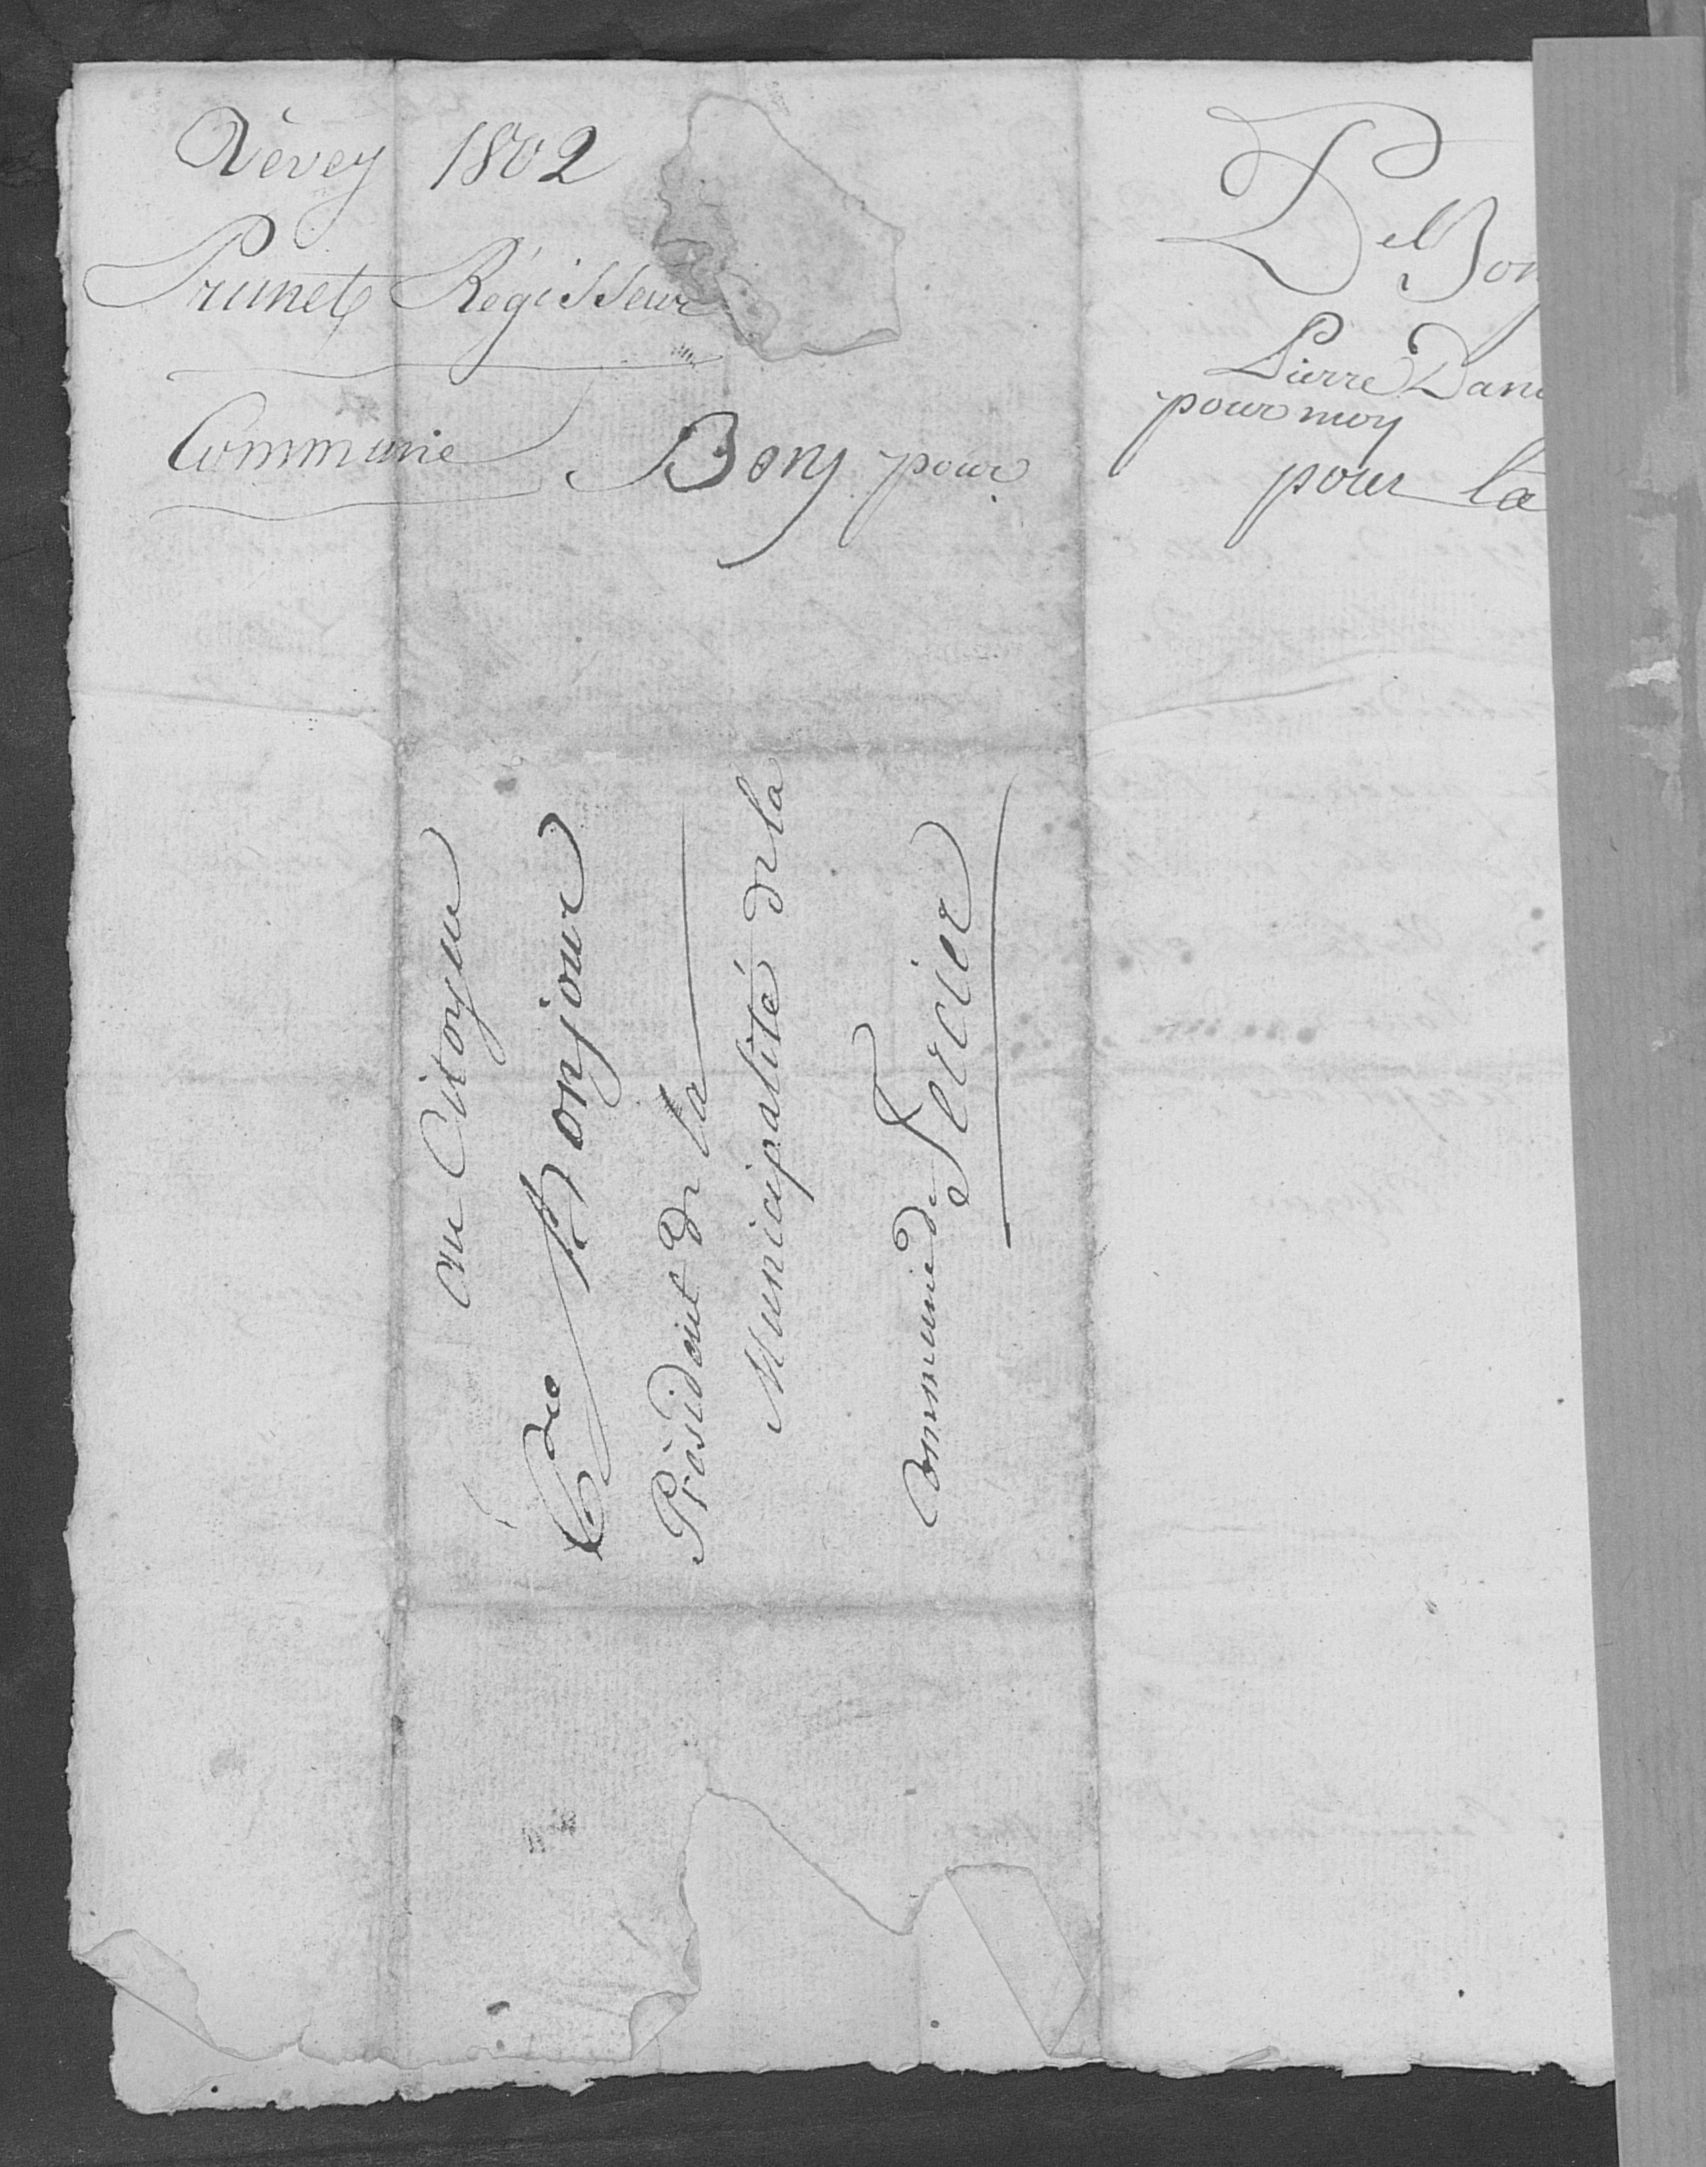 Vevey 1802
Prunet Régisseur
Commune Bonj pour
Del Bon
Pierre Dani
pour moy
pour la
au Citoyen
Bonjour
Président de la
Municipalité de la
Commune de Fercier